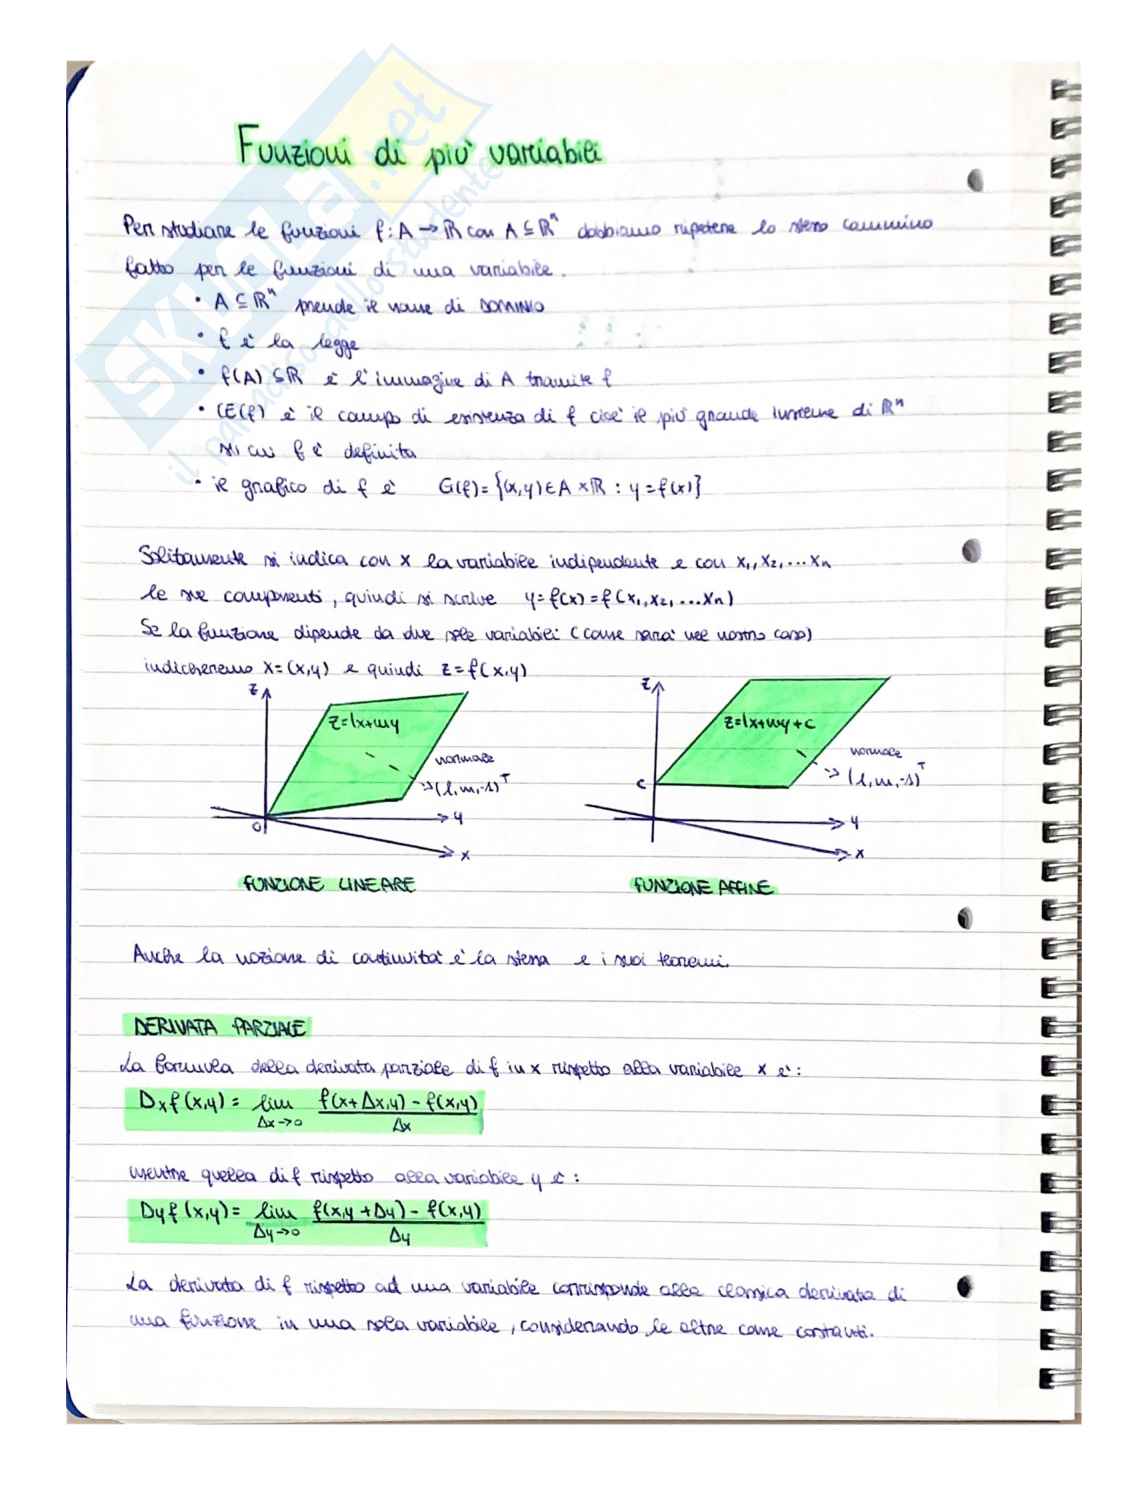 Funzioni di più variabili
Per studiare le funzioni f: A → ℝ con A ⊆ ℝⁿ dobbiamo ripetere lo stesso cammino
fatto per le funzioni di una variabile.
• A ⊆ ℝⁿ prende il nome di DOMINIO
• f è la legge
• f(A) ⊆ ℝ è l'immagine di A tramite f
• CE(f) è il campo di esistenza di f cioè il più grande insieme di ℝⁿ
su cui f è definita
• il grafico di f è G(f) = {(x,y) ∈ A × ℝ : y = f(x)}
Solitamente si indica con x la variabile indipendente e con x₁, x₂, ... xₙ
le sue componenti, quindi si scrive y = f(x) = f(x₁, x₂, ... xₙ)
Se la funzione dipende da due sole variabili (come sarà nel nostro caso)
indicheremo x = (x,y) e quindi z = f(x,y)
z
z = lx + my
normale
(l, m, -1)ᵀ
0
y
x
FUNZIONE LINEARE
z
z = lx + my + c
normale
(l, m, -1)ᵀ
c
y
x
FUNZIONE AFFINE
Anche la nozione di continuità è la stessa e i suoi teoremi.
DERIVATA PARZIALE
La formula della derivata parziale di f in x rispetto alla variabile x è:
Dxf(x,y) = lim Δx→0 f(x+Δx,y) - f(x,y) / Δx
mentre quella di f rispetto alla variabile y è:
Dyf(x,y) = lim Δy→0 f(x,y+Δy) - f(x,y) / Δy
La derivata di f rispetto ad una variabile corrisponde alla classica derivata di
una funzione in una sola variabile, considerando le altre come costanti.
SKUOLA.net
il paradiso dello studente